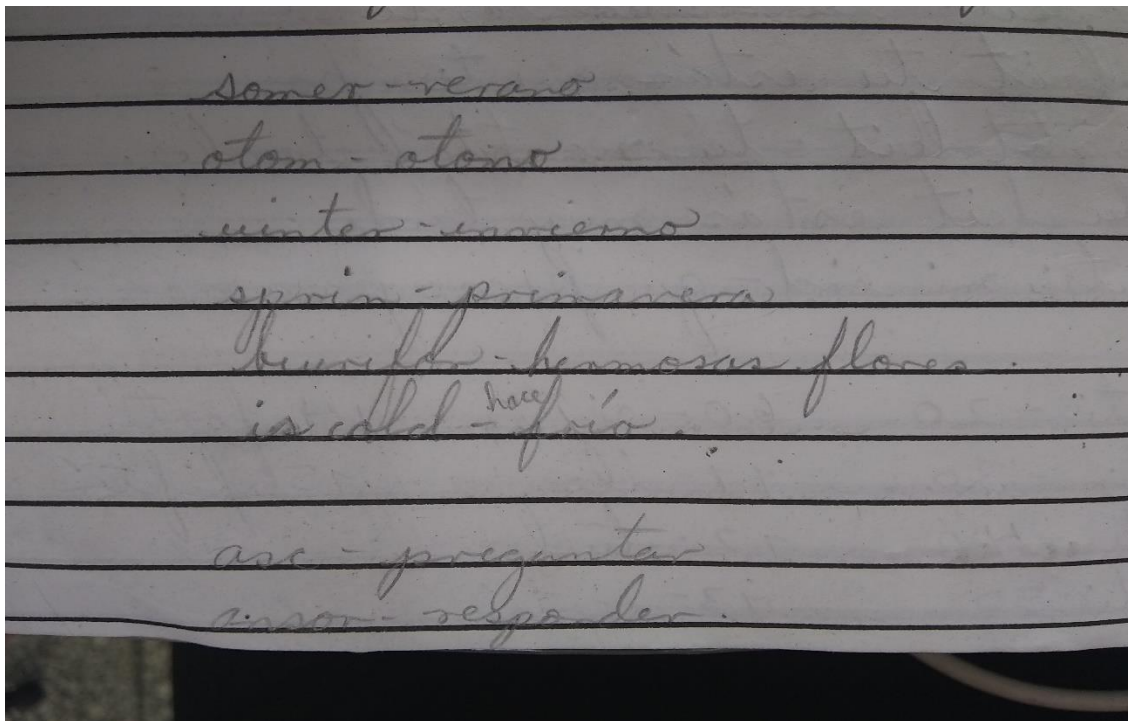 somer - verano
otom - otono
uinter - invierno
sprin - primavera
- hermosas flores.
is cold - hace frío.
asc - preguntar
ansor - responder.